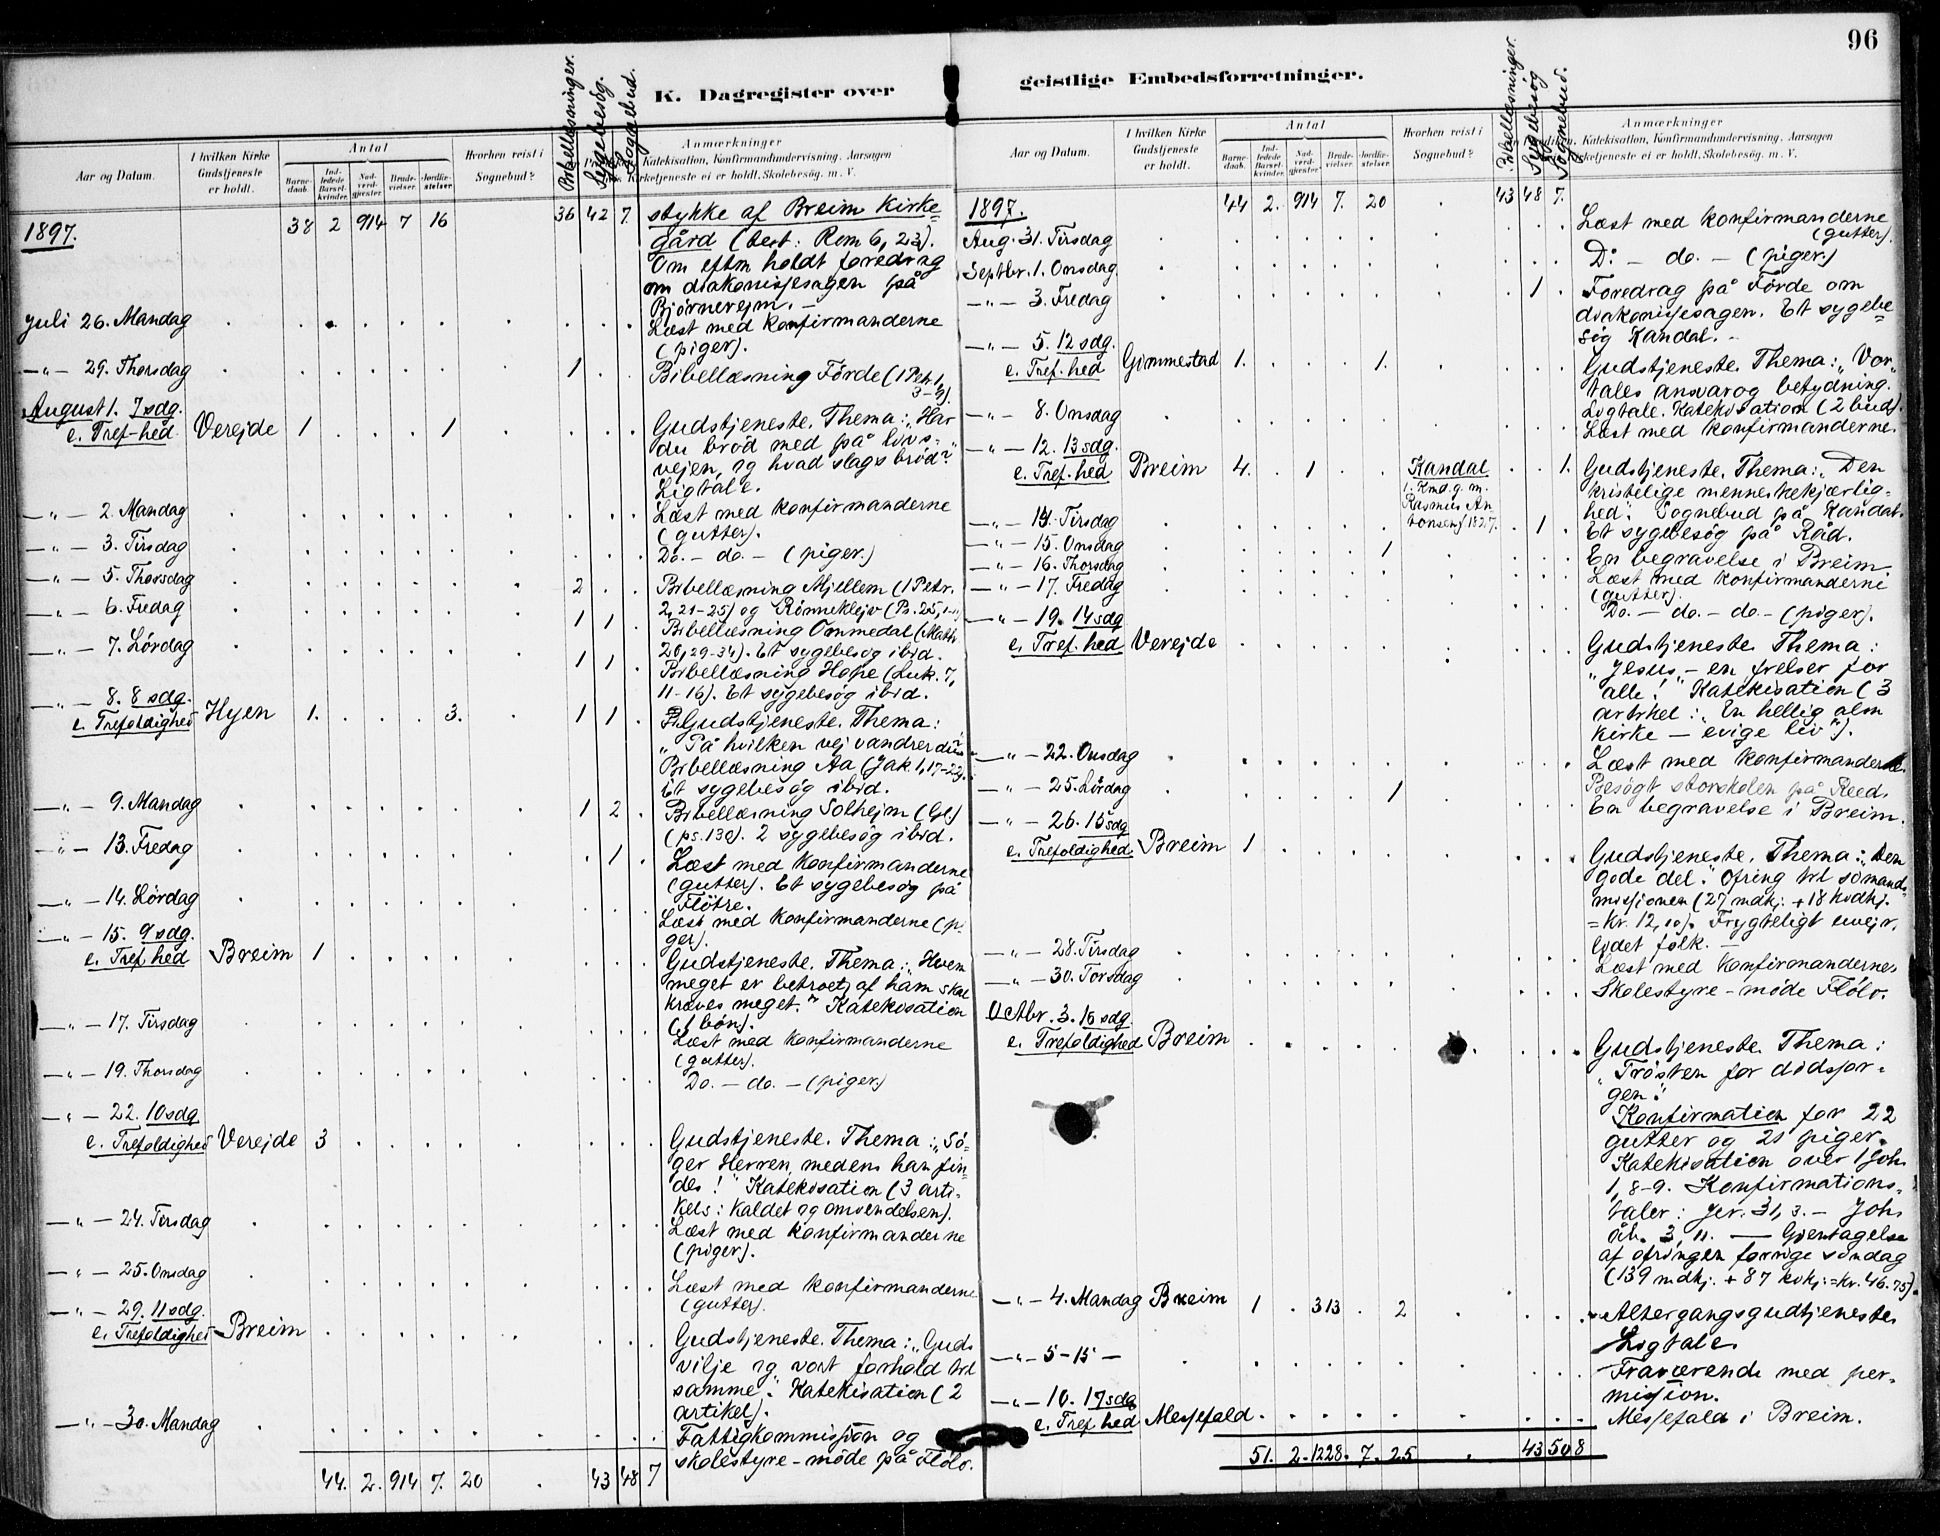 96
K. Dagregister over
geistlige Embedsforretninger.
Aar og Datum.
I hvilken Kirke
Gudstjeneste
er holdt.
Antal
Barne-
daab.
Ind-
ledede
Barsel-
kvinder.
Nad-
verd-
gjester.
Brude-
vielser.
Jordfæ-
stelser.
Hvorhen reist i
Sognebud?
Bibellæsninger.
Sygebesøg.
Sognebud.
Anmærkninger
Katekisation, Konfirmandundervisning. Aarsagen
Kirketjeneste ei er holdt. Skolebesøg. m. V.
1897. 38 2 914 7 16 36 42 7. stykke af Breim Kirke=
gård (test: Rom 6, 23).
Om eftm holdt foredrag
om diakonissesagen på
Bjørnerejm. –
Juli 26. Mandag Læst med konfirmanderne
(piger).
— " — 29. Thorsdag 1 Bibellæsning Förde (1 Petr 1,
3-9).
August 1. 7 sdg.
e. Tref-hed Vereide 1 1 Gudstjeneste. Thema: „Har
du bröd med på livs-
vejen, og hvad slags bröd?"
Ligtale.
— " — 2. Mandag Læst med konfirmanderne
(gutter).
— " — 3. Tirsdag Do. – do. – (piger.)
— " — 5. Thorsdag 2 Bibellæsning Mjellem (1 Petr.
2, 21-25) og Rønnekleiv (Ps. 25,
— " — 6. Fredag 1 1 Bibellæsning Ommedal (Math
20, 29-34). Et sygebesøg ibid.
— " — 7. Lördag 1 1 Bibellæsning Hope (Luk. 7,
11-16). Et sygebesøg ibid.
— " — 8. 8 sdg.
e. Trefoldighed Hyen 1. 3. 1 1 Gudstjeneste. Thema:
„På hvilken vej vandrer du?"
Bibellæsning Aa (Jak. 1, 17-22).
Et sygebesøg ibid.
— " — 9. Mandag 1 2 Bibellæsning Solhejm (Gl.)
(ps. 130). 2 sygebesøg ibid.
— " — 13. Fredag 1 Læst med konfirmanderne
(gutter). Et sygebesøg på
Flötre.
— " — 14. Lördag Læst med konfirmanderne (pi-
ger).
— " — 15. 9 sdg.
e. Tref hed Breim 1 Gudstjeneste. Thema: „Hvem
meget er betroet, af ham skal
kræves meget." Katekisation
(1 bön).
— " — 17. Tirsdag Læst med konfirmanderne
(gutter).
— " — 19. Thorsdag Do. – do. – (piger)
— " — 22. 10 sdg
e. Trefoldighed Vereide 3 Gudstjeneste. Thema: „Sö-
ger Herren, medens han fin-
des!" Katekisation (3 arti-
kels: kaldet og omvendelsen).
— " — 24. Tirsdag Læst med konfirmanderne
(piger).
— " — 25. Onsdag Læst med konfirmanderne
(gutter).
— " — 29. 11 sdg.
e. Trefoldighed Breim Gudstjeneste. Thema: „Guds
vilje og vort forhold til
samme." Katekisation (2
artikel).
— " — 30. Mandag Fattigkommission og
skolestyre-möde på Flölo.
44. 2. 914 7. 20 43 48 7
Aar og Datum.
I hvilken Kirke
Gudstjeneste
er holdt.
Antal
Barne-
daab.
Ind-
ledede
Barsel-
kvinder.
Nad-
verd-
gjester.
Brude-
vielser.
Jordfæ-
stelser.
Hvorhen reist i
Sognebud?
Bibellæsninger.
Sygebesøg
Sognebud.
Anmærkninger
Katekisation, Konfirmandundervisning. Aarsagen
Kirketjeneste ei er holdt. Skolebesøg. m. V.
1897. 44 2. 914 7. 20 43 48 7.
Aug. 31. Tirsdag Læst med konfirmanderne
(gutter).
Septbr. 1. Onsdag D: – do. – (piger.)
— " — 3. Fredag 1 Foredrag på Förde om
diakonissesagen. Et sygebe=
søg Kandal. –
— " — 5. 12 sdg.
e. Tref. hed Gimmestad 1. 1. Gudstjeneste. Thema: „Vor
tales ansvar og betydning.
Ligtale. Katekisation (2 bud).
— " — 8. Onsdag Læst med konfirmanderne.
— " — 12. 13 sdg.
e. Tref. hed Breim 4. 1 Kandal 1. Gudstjeneste. Thema: „Den
1. Kmd. g. m.
Rasmus An
tonsen f 1827.
kristelige menneskekjærlig-
hed". Sognebud på Kandal.
— " — 14. Tirsdag 1 Et sygebesøg på Råd.
— " — 15. Onsdag 1 En begravelse i Breim.
— " — 16. Thorsdag Læst med konfirmanderne
(gutter).
— " — 17. Fredag Do. – do. – do. – (piger).
— " — 19. 14 sdg
e. Tref. hed Vereide Gudstjeneste. Thema:
„Jesus – en frelser for
alle." Katekisation (3
artikel: „En hellig alm
kirke – evige liv").
— " — 22. Onsdag Læst med konfirmanderne.
Besøgt storskolen på Reed.
— " — 25. Lördag 1 En begravelse i Breim.
— " — 26. 15 sdg
e. Trefoldighed. Breim 1 Gudstjeneste. Thema: „Den
gode del." Ofring til sömands-
missionen (27 mdkj. + 18 kvdkj.
= Kr. 12,10). Frygteligt uvejr,
lidet folk. –
— " — 28. Tirsdag Læst med konfirmanderne
— " — 30. Torsdag Skolestyre-möde Flölo.
Octbr. 3. 16 sdg.
e. Trefoldighed Breim Gudstjeneste. Thema:
„Trösten for dödssor-
gen."
Konfirmation for 22
gutter og 21 piger.
Katekisation over 1 Joh.
1, 8-9. Konfirmations-
taler: Jer. 31, 3. – Joh
åb. 3, 11. — Gjentagelse
af ofringen forrige söndag
(139 mdkj. + 87 kvkj. = kr. 46.75).
— " — 4. Mandag Breim 1 313 2 Altergangsgudtjeneste
Ligtale
— " — 5-15 — Fraværende med per-
mission.
— " — 10. 17 sdg
e. Tref hed Messefald. Messefald i Breim.
51. 2. 1228. 7. 25 43 50 8